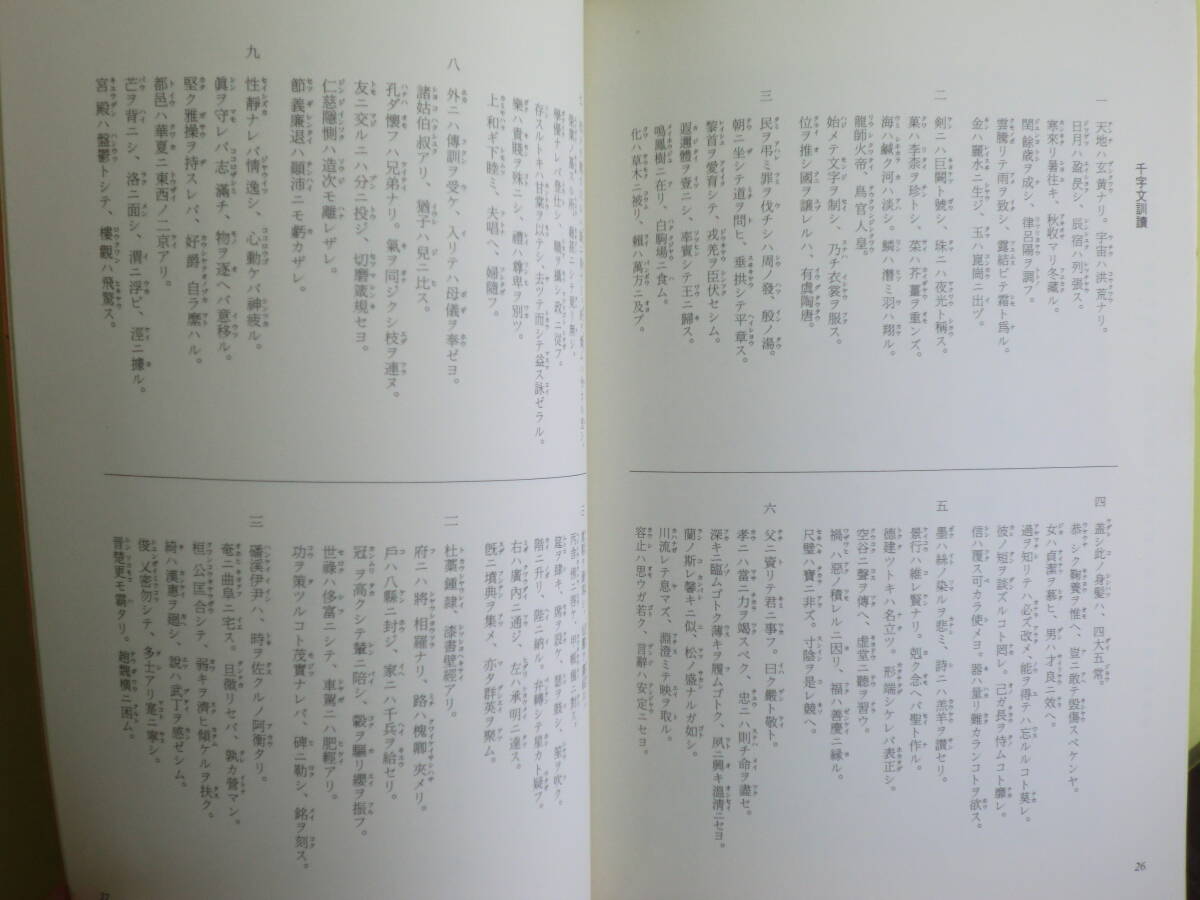 千字文訓讀
一 天地ハ玄黄ナリ。宇宙ハ洪荒ナリ。
日月ハ盈昃シ、辰宿ハ列張ス。
寒來リ暑往キ、秋收マリ冬藏ル。
閏餘歳ヲ成シ、律呂陽ヲ調フ。
雲騰リテ雨ヲ致シ、露結ビテ霜ト爲ル。
金ハ麗水ニ生ジ、玉ハ崑崗ニ出ヅ。
二 劍ニハ巨闕ト號シ、珠ニハ夜光ト稱ス。
菓ハ李奈ヲ珍トシ、菜ハ芥薑ヲ重ンズ。
海ハ鹹ク河ハ淡シ。鱗ハ潛ミ羽ハ翔ル。
龍師火帝、鳥官人皇。
始メテ文字ヲ制シ、乃チ衣裳ヲ服ス。
位ヲ推シ國ヲ讓レルハ、有虞陶唐。
三 民ヲ弔ミ罪ヲ伐チシハ周ノ發、殷ノ湯。
朝ニ坐シテ道ヲ問ヒ、垂拱シテ平章ス。
黎首ヲ愛育シテ、戎羌ヲ臣伏セシム。
遐邇體ヲ壹ニシ、率賓シテ王ニ歸ス。
鳴鳳樹ニ在リ、白駒場ニ食ム。
化ハ草木ニ被リ、賴ハ萬方ニ及ブ。
四 蓋シ此ノ身髪ハ、四大五常。
恭シク鞠養ヲ惟ヘ、豈ニ敢テ毀傷スベケンヤ。
女ハ貞潔ヲ慕ヒ、男ハ才良ニ效ヘ。
過ヲ知リテハ必ズ改メ、能ヲ得テハ忘ルルコト莫レ。
彼ノ短ヲ談ズルコト罔レ。己ガ長ヲ恃ムコト靡レ。
信ハ覆ス可カラ使メヨ。器ハ量リ難カランコトヲ欲ス。
五 墨ハ絲ノ染ルヲ悲ミ、詩ニハ羔羊ヲ讚セリ。
景行ハ維レ賢ナリ。剋ク念ヘバ聖ト作ル。
德建ツトキハ名立ツ。形端シケレバ表正シ。
空谷ニ聲ヲ傳ヘ、虚堂ニ聽ヲ習ウ。
禍ハ惡ノ積レルニ因リ、福ハ善慶ニ縁ル。
尺璧ハ寶ニ非ズ。寸陰ヲ是レ競ヘ。
六 父ニ資リテ君ニ事フ。曰ク嚴ト敬ト。
孝ニハ當ニ力ヲ竭スベク、忠ニハ則チ命ヲ盡セ。
深キニ臨ムゴトク薄キヲ履ムゴトク、夙ニ興キ溫凊ニセヨ。
蘭ノ斯レ馨キニ似、松ノ盛ナルガ如シ。
川流レテ息マズ、淵澄ミテ映ヲ取ル。
容止ハ思ウガ若ク、言辭ハ安定ニセヨ。
26
學優ナレバ登仕シ、職ヲ攝リ政ニ從フ。
存スルトキハ甘棠ヲ以テシ、去ッテ而シテ益ス詠ゼラル。
樂ハ貴賤ヲ殊ニシ、禮ハ尊卑ヲ別ツ。
上和ギ下睦ミ、夫唱ヘ、婦隨フ。
八 外ニハ傳訓ヲ受ケ、入リテハ母儀ヲ奉ゼヨ。
諸姑伯叔アリ、猶子ハ兒ニ比ス。
孔ダ懷フハ兄弟ナリ。氣ヲ同ジクシ枝ヲ連ヌ。
友ニ交ルニハ分ニ投ジ、切磨箴規セヨ。
仁慈隱惻ハ造次モ離レザレ。
節義廉退ハ顛沛ニモ虧カザレ。
九 性靜ナレバ情逸シ、心動ケバ神疲ル。
眞ヲ守レバ志シ滿チ、物ヲ逐ヘバ意移ル。
堅ク雅操ヲ持スレバ、好爵自ラ縻ハル。
都邑ハ華夏ニ東西ノ二京アリ。
芒ヲ背ニシ、洛ニ面シ、渭ニ浮ビ、涇ニ據ル。
宮殿ハ盤鬱トシテ、樓觀ハ飛驚ス。
階ニ升リ、陛ニ納ル。弁轉シテ星カト疑フ。
右ハ廣内ニ通ジ、左ハ承明ニ達ス。
既ニ墳典ヲ集メ、亦タ群英ヲ聚ム。
杜藁鍾隸、漆書壁經アリ。
府ニハ將相羅ナリ、路ハ槐卿夾メリ。
戸ハ八縣ニ封シ、家ニハ千兵ヲ給セリ。
冠ヲ高クシテ輦ニ陪シ、轂ヲ驅リ纓ヲ振フ。
世祿ハ侈富ニシテ、車駕ニハ肥輕アリ。
功ヲ策ツルコト茂實ナレバ、碑ニ勒シ、銘ヲ刻ス。
磻溪伊尹ハ、時ヲ佐クルノ阿衡タリ。
奄ニ曲阜ニ宅ス。旦微リセバ、孰カ營マン。
桓公匡合シテ、弱キヲ濟ヒ傾ケルヲ扶ク。
綺ハ漢惠ヲ廻シ、說ハ武丁ヲ感ゼシム。
俊乂密勿シテ、多士アリ寔ニ寧シ。
晉楚更モ霸タリ。趙魏橫ニ困ム。